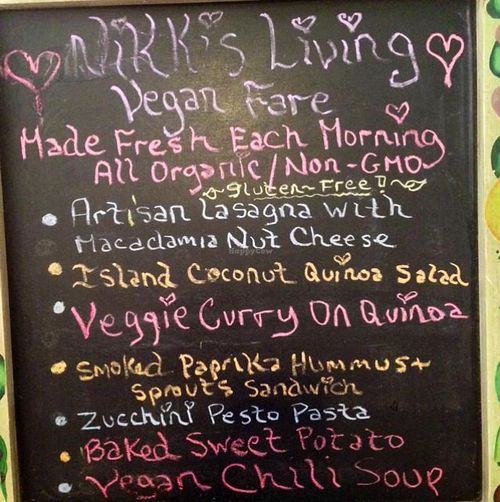 Nikki's Living
Vegan Fare
Made Fresh Each Morning
All Organic/Non-GMO
Gluten-Free!
• Artisan Lasagna with
Macadamia Nut Cheese
• Island Coconut Quinoa Salad
• Veggie Curry On Quinoa
• Smoked Paprika Hummus +
Sprouts Sandwich
• Zucchini Pesto Pasta
• Baked Sweet Potato
• Vegan Chili Soup
HappyCow